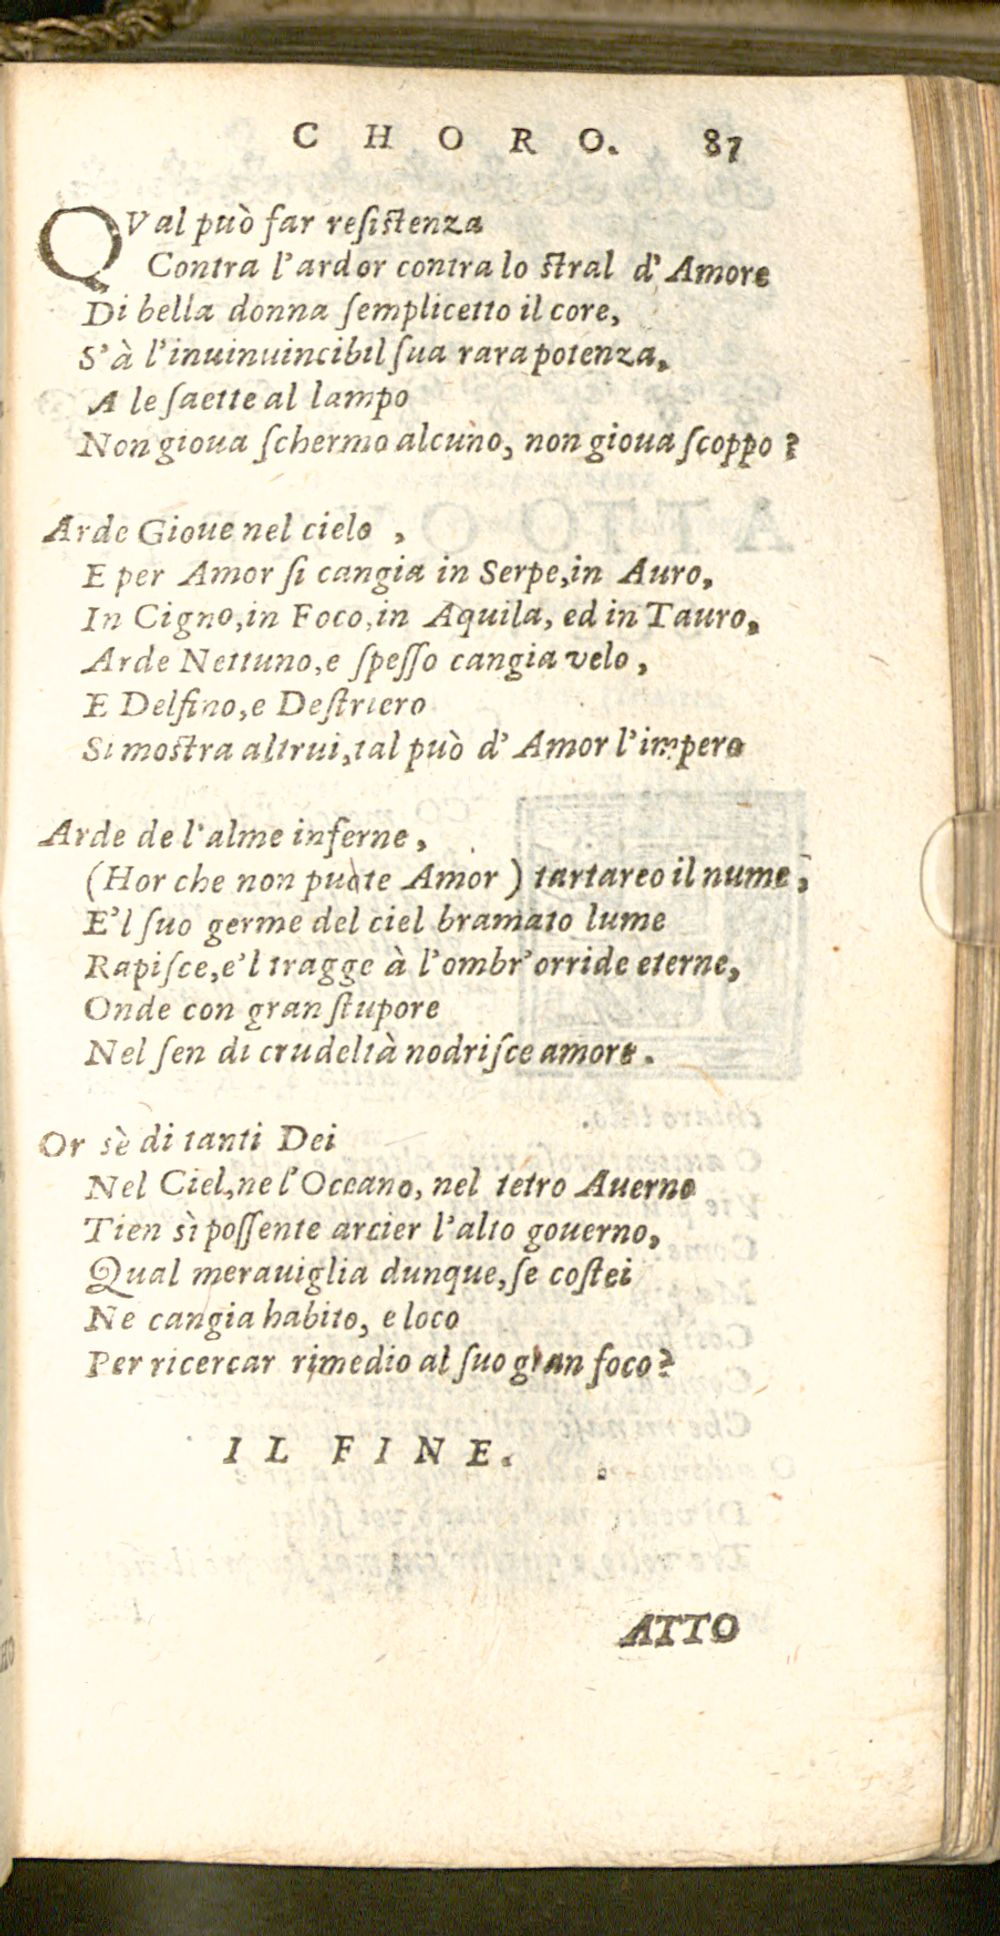 CHORO. 87
QVal può far resistenza
Contra l'ardor contra lo stral d'Amore
Di bella donna semplicetto il core,
S'à l'inuinuincibil sua rara potenza,
A le saette al lampo
Non gioua schermo alcuno, non gioua scoppo?
Arde Gioue nel cielo,
E per Amor si cangia in Serpe, in Auro,
In Cigno, in Foco, in Aquila, ed in Tauro,
Arde Nettuno, e spesso cangia velo,
E Delfino, e Destriero
Si mostra altrui, tal può d'Amor l'impero
Arde de l'alme inferne,
(Hor che non puote Amor) tartareo il nume,
E'l suo germe del ciel bramato lume
Rapisce, e'l tragge à l'ombr'orride eterne,
Onde con gran stupore
Nel sen di crudeltà nodrisce amore.
Or sè di tanti Dei
Nel Ciel, ne l'Oceano, nel tetro Auerno
Tien sì possente arcier l'alto gouerno,
Qual merauiglia dunque, se costei
Ne cangia habito, e loco
Per ricercar rimedio al suo gran foco?
IL FINE.
ATTO